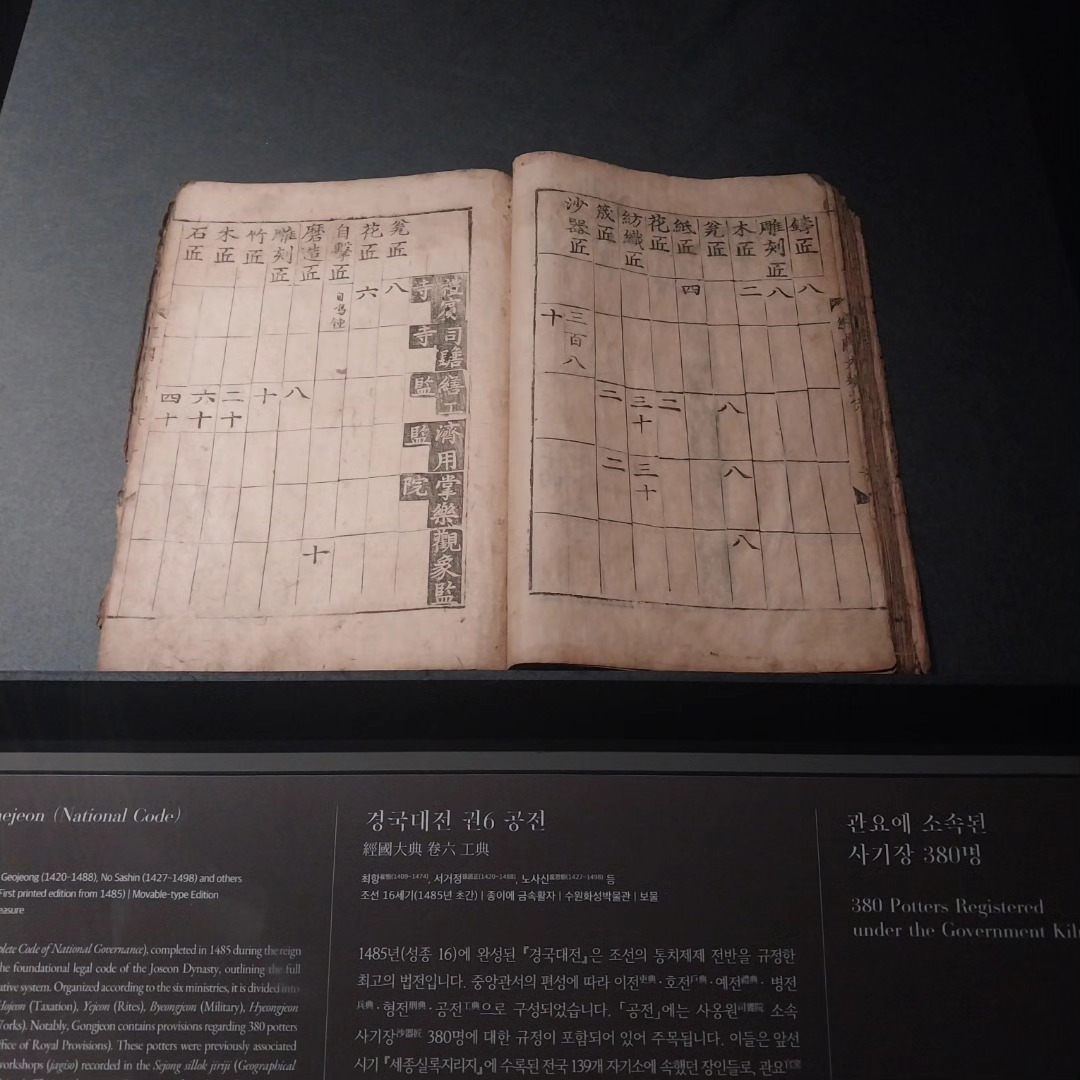 鑄匠 八
雕刻匠 八
木匠 二
瓮匠 八 八 八
紙匠 四
花匠 二
紡織匠 三十 三十
筬匠 二 二
沙器匠 三百八十
禮賓寺 司䆃寺 繕工監 濟用監 掌樂院 觀象監
瓮匠 八
花匠 六
自擊匠 自鳴鍾 十
磨造匠 八
雕刻匠 十
竹匠 二十
木匠 六十
石匠 四十
(National Code)
Geojeong (1420-1488), No Sashin (1427-1498) and others
First printed edition from 1485) | Movable-type Edition
Code of National Governance), completed in 1485 during the reign
the foundational legal code of the Joseon Dynasty, outlining the full
system. Organized according to the six ministries, it is divided into
(Taxation), Yejeon (Rites), Byeongjeon (Military), Hyeongjeon
Notably, Gongjeon contains provisions regarding 380 potters
of Royal Provisions). These potters were previously associated
workshops (jagiso) recorded in the Sejong sillok jiriji (Geographical
경국대전 권6 공전
經國大典 卷六 工典
최항崔恒(1409~1474), 서거정徐居正(1420~1488), 노사신盧思愼(1427~1498) 등
조선 16세기(1485년 초간) | 종이에 금속활자 | 수원화성박물관 | 보물
1485년(성종 16)에 완성된 『경국대전』은 조선의 통치체제 전반을 규정한
최고의 법전입니다. 중앙관서의 편성에 따라 이전吏典·호전戶典·예전禮典· 병전
兵典·형전刑典·공전工典으로 구성되었습니다. 「공전」에는 사옹원司饔院 소속
사기장沙器匠 380명에 대한 규정이 포함되어 있어 주목됩니다. 이들은 앞선
시기 『세종실록지리지』에 수록된 전국 139개 자기소에 속했던 장인들로, 관요官窯
관요에 소속된
사기장 380명
380 Potters Registered
under the Government